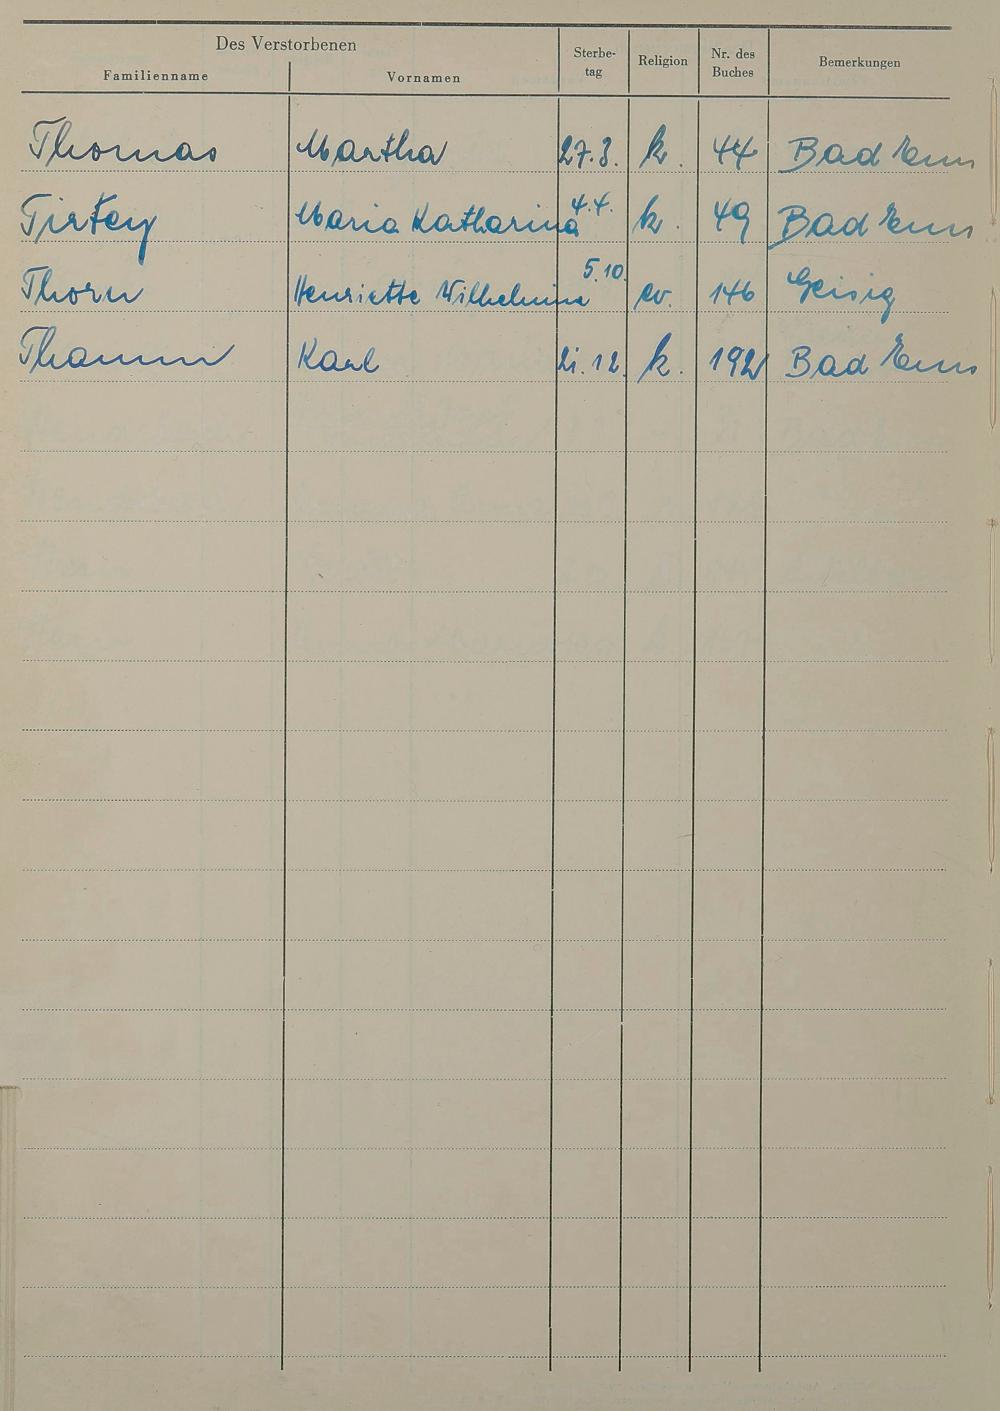 Des Verstorbenen
Familienname Vornamen Sterbe-tag Religion Nr. des Buches Bemerkungen
Thomas Martha 27.3. k. 44 Bad Ems
Tirkey Maria Katharina 4.4. k. 49 Bad Ems
Thorn Henriette Wilhelmine 5.10. ev. 146 Geisig
Thamm Karl 21.12. k. 192 Bad Ems